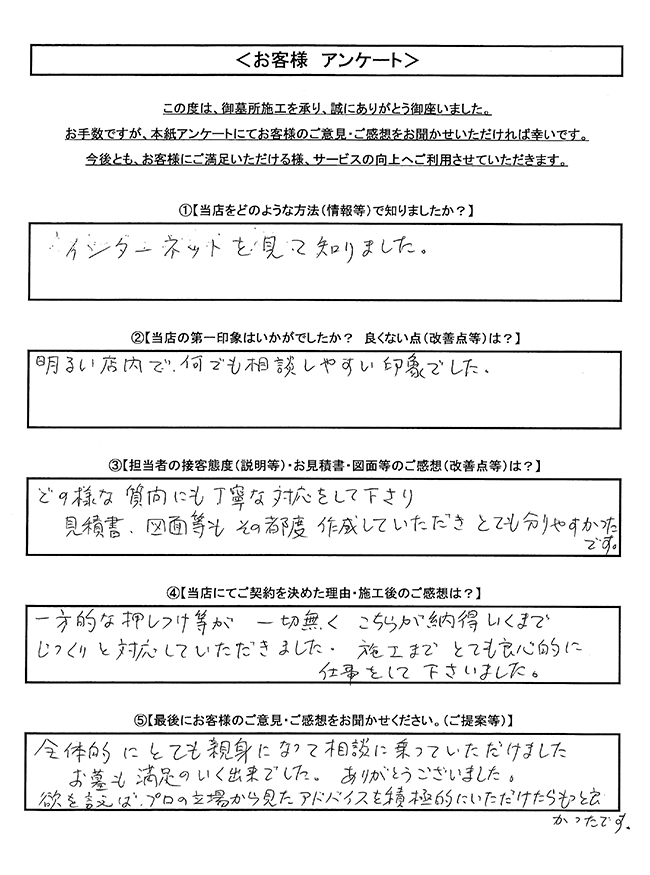 ＜お客様　アンケート＞
この度は、御墓所施工を承り、誠にありがとう御座いました。
お手数ですが、本紙アンケートにてお客様のご意見・ご感想をお聞かせいただければ幸いです。
今後とも、お客様にご満足いただける様、サービスの向上へご利用させていただきます。
①【当店をどのような方法（情報等）で知りましたか？】
インターネットを見て知りました。
②【当店の第一印象はいかがでしたか？　良くない点（改善点等）は？】
明るい店内で、何でも相談しやすい印象でした。
③【担当者の接客態度（説明等）・お見積書・図面等のご感想（改善点等）は？】
どの様な質問にも丁寧な対応をして下さり
見積書、図面等もその都度作成していただきとても分りやすかった
です。
④【当店にてご契約を決めた理由・施工後のご感想は？】
一方的な押しつけ等が一切無くこちらが納得いくまで
じっくりと対応していただきました。施工までとても良心的に
仕事をして下さいました。
⑤【最後にお客様のご意見・ご感想をお聞かせください。（ご提案等）】
全体的にとても親身になって相談に乗っていただけました
お墓も満足のいく出来でした。ありがとうございました。
欲を言えば、プロの立場から見たアドバイスを積極的にいただけたらもっと良
かったです。